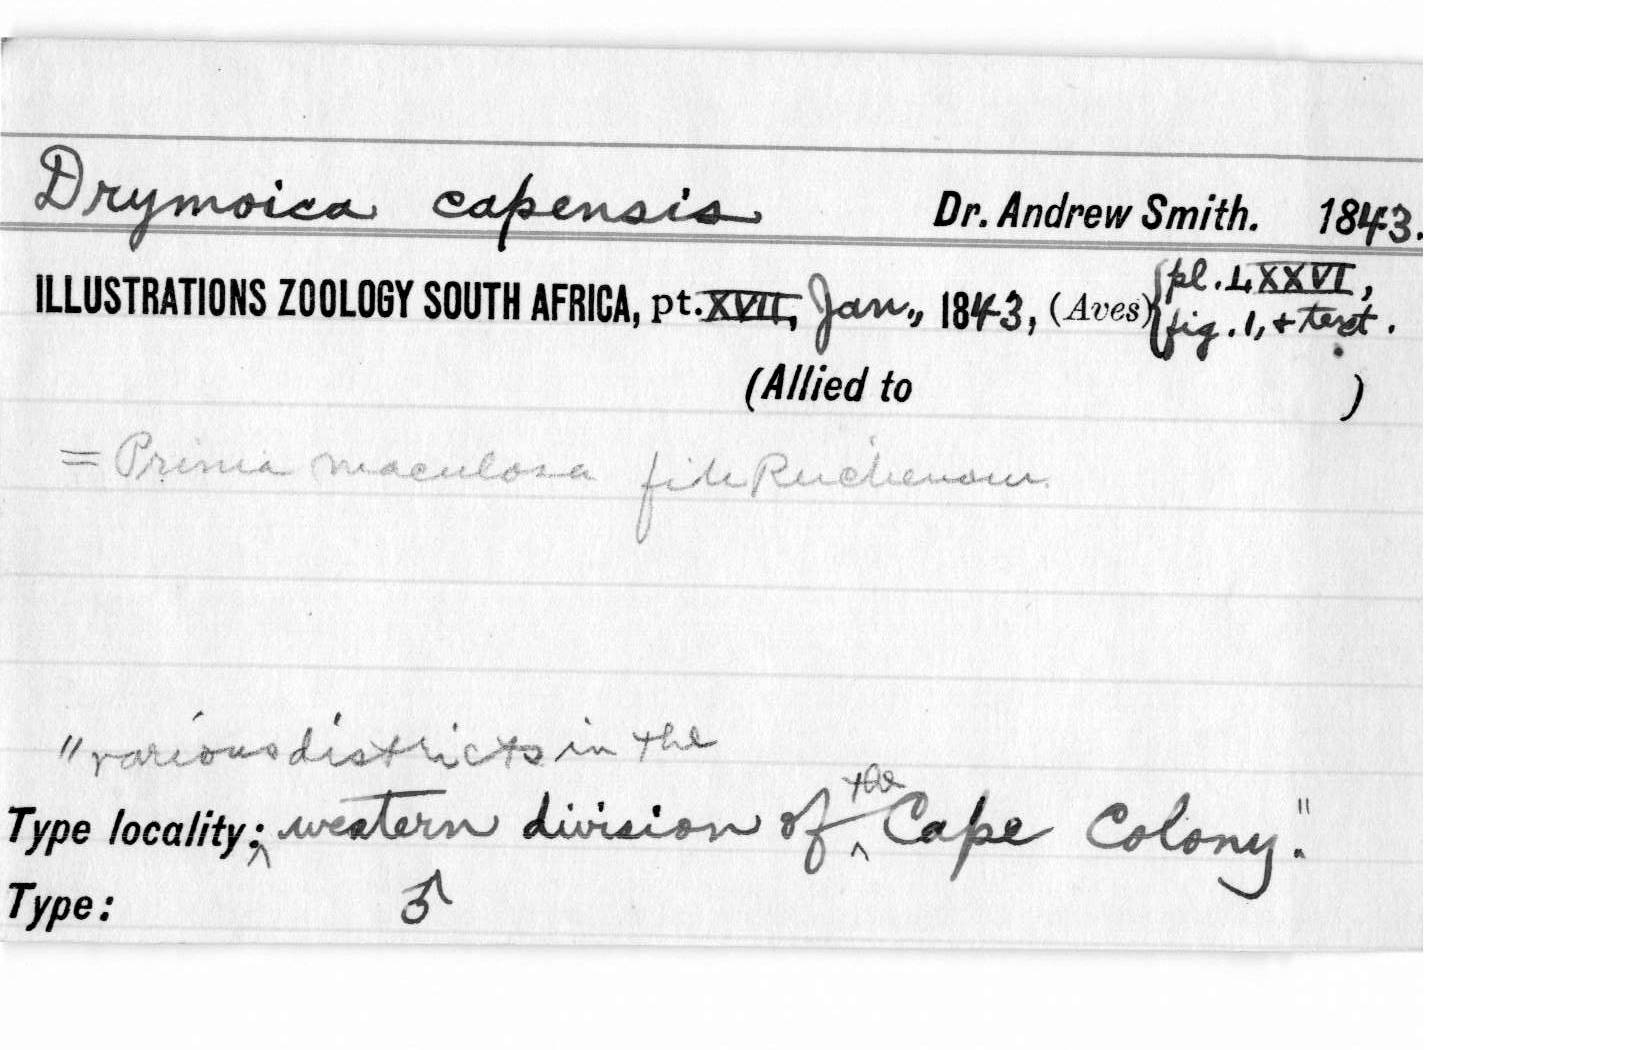 Drymoica capensis Dr. Andrew Smith. 1843.
ILLUSTRATIONS ZOOLOGY SOUTH AFRICA, pt. XVII, Jan., 1843, (Aves) { pl. LXXVI,
fig. 1, + text.
(Allied to )
= Prinia maculosa fide Reichenow.
"various districts in the
the
Type locality: ^ western division of ^ Cape Colony."
Type: ♂